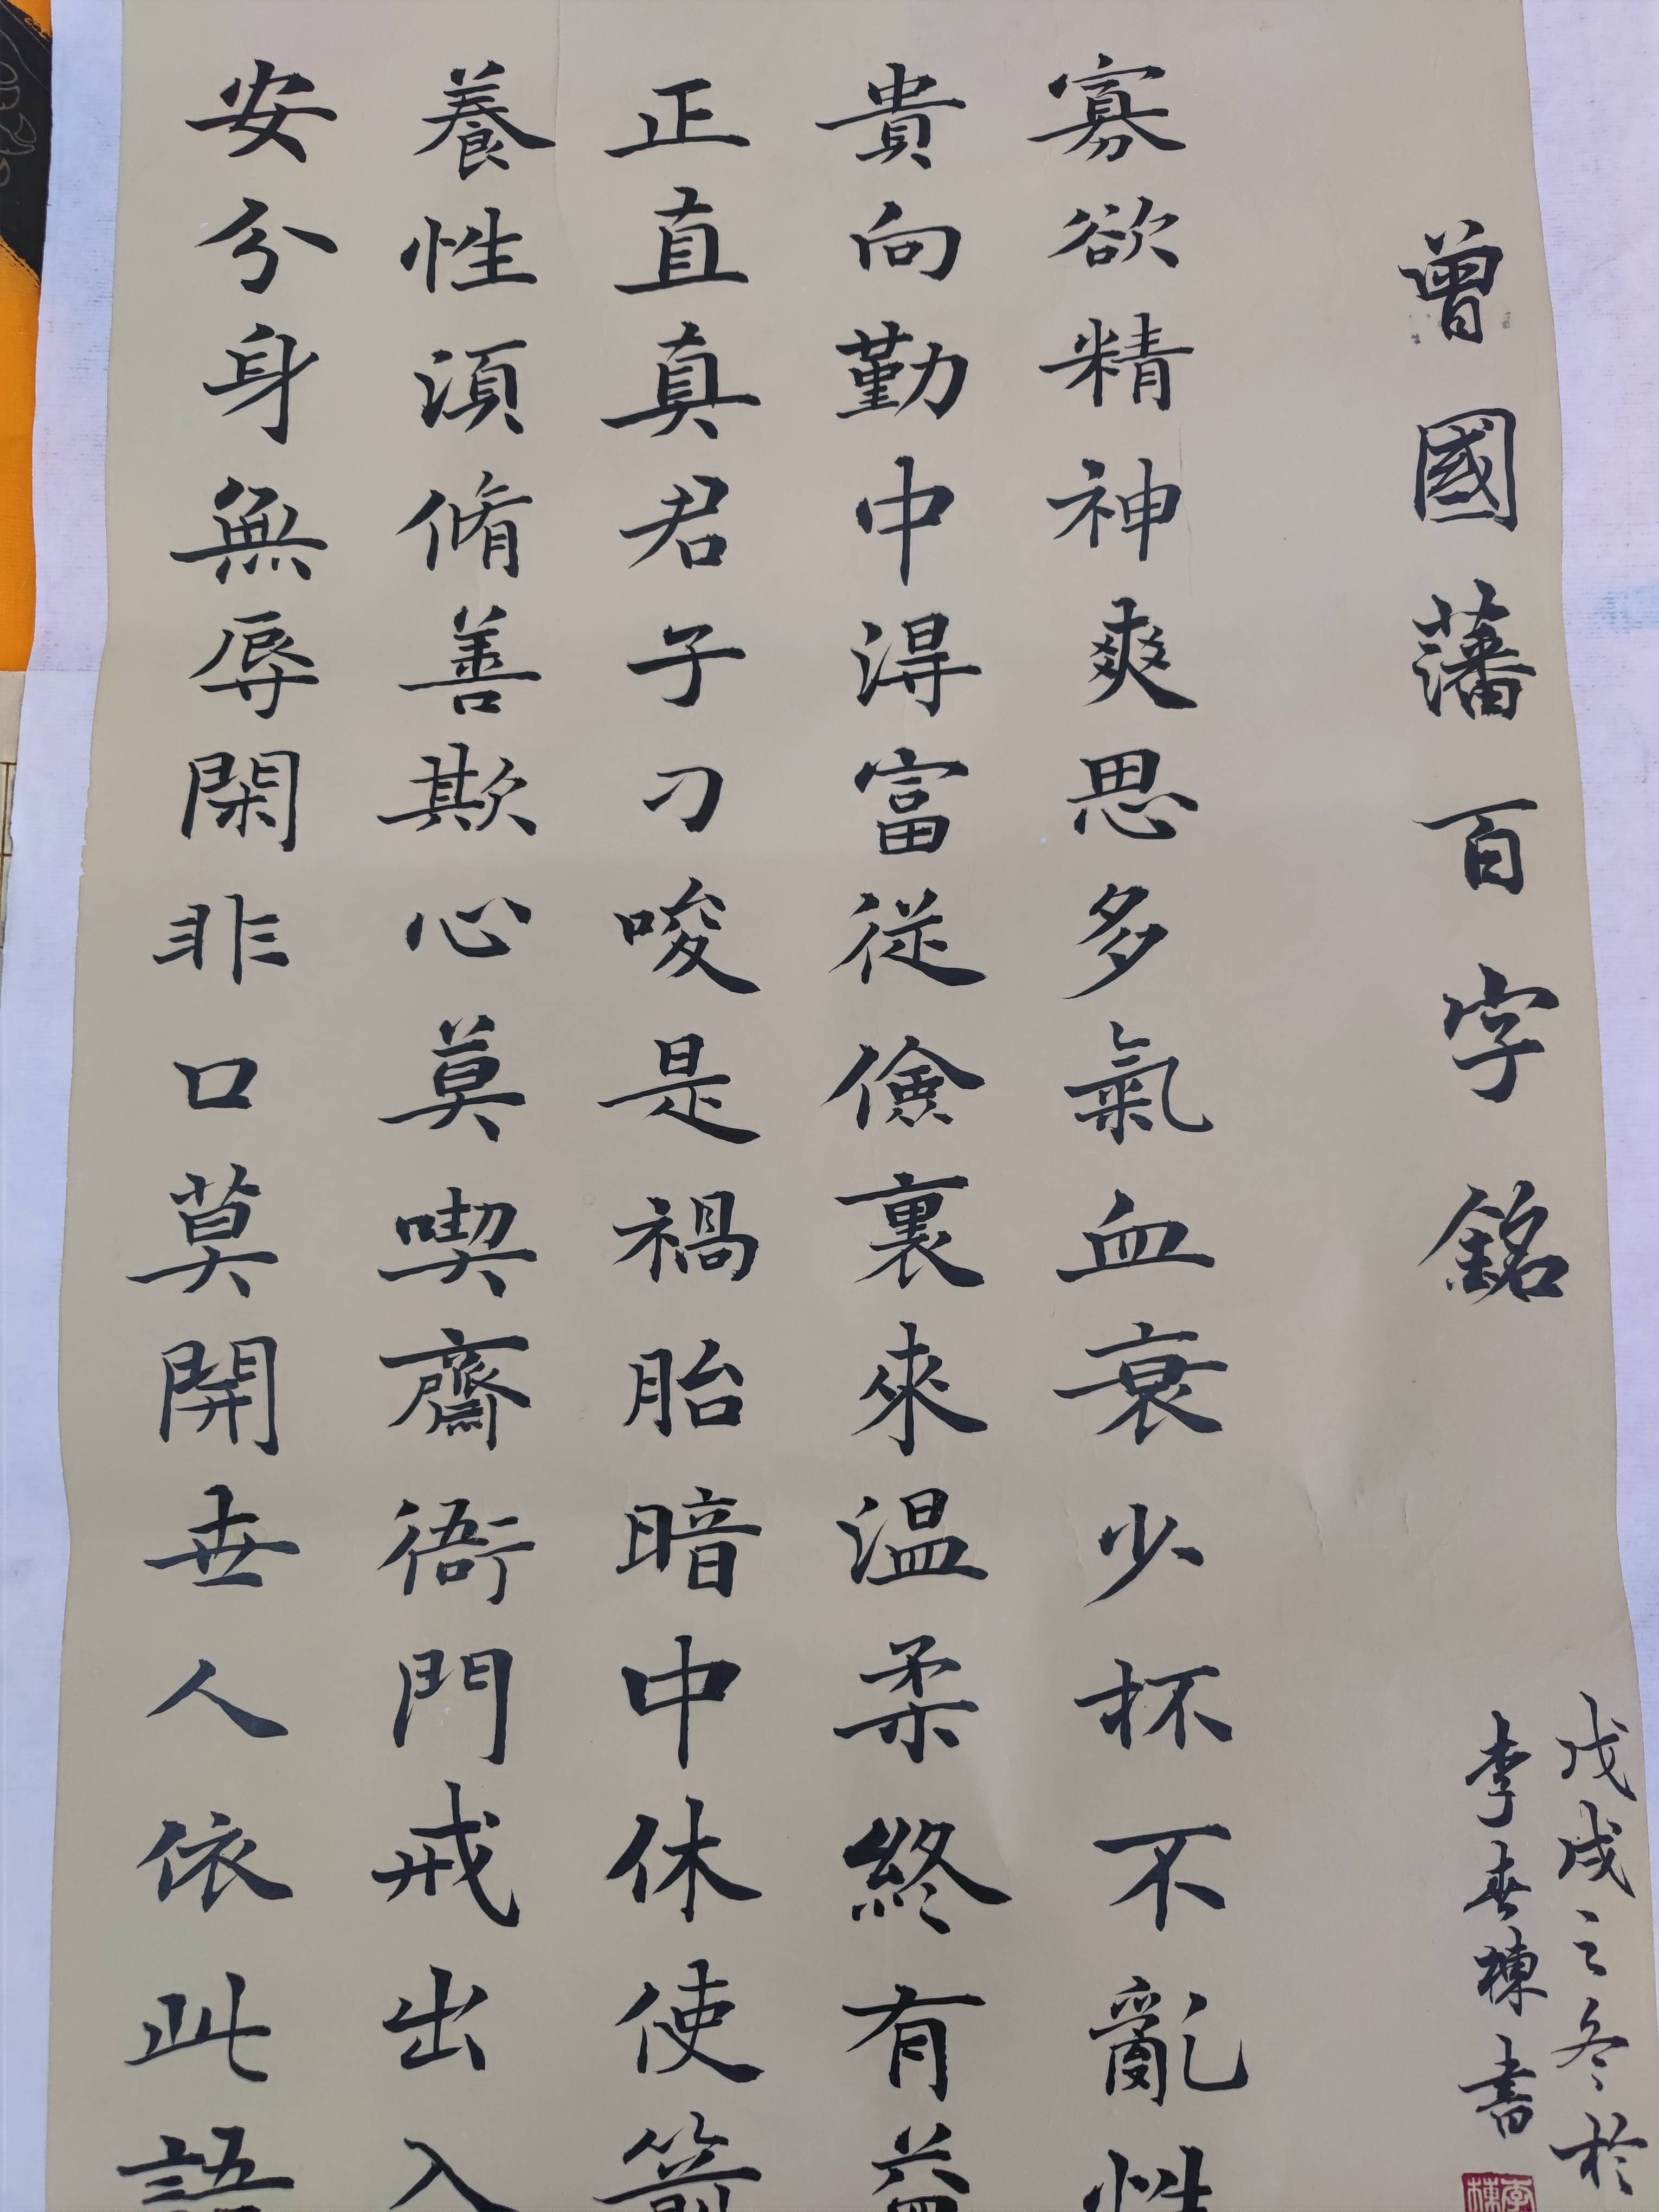 曾國藩百字銘
戊戌之冬於
李春棟書
寡欲精神爽思多氣血衰少杯不亂性
貴向勤中得富從儉裏來温柔終有益
正直真君子刁唆是禍胎暗中休使箭
養性須脩善欺心莫喫齋衙門戒出入
安分身無辱閑非口莫開世人依此語